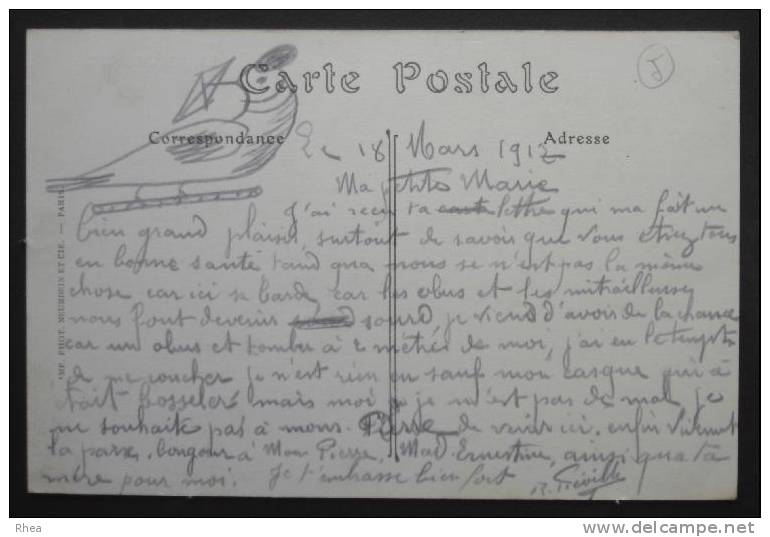 J
Carte Postale
Correspondance
Adresse
Le 18 Mars 1912
Ma petite Marie
J'ai recu ta carte lettre qui ma fait un
bien grand plaisir, surtout de savoir que vous etiez tous
en bonne santé tand qua nous se n'est pas la même
chose car ici sa barde car les obus et les mitrailleuses
nous font devenir sourd je viend d'avoir de la chance
car un obus et tomber à 2 mètres de moi, j'ai eu le temps
de me coucher je n'est rien eu sauf mon casque qui à
était bosseler mais moi je n'est pas de mal je
ne souhaite pas à mons. Pierre de venir ici. enfin vivement
la paix, bonjour à Mon Pierre, Mad Ernestine, ainsi qua ta
mère pour moi. Je t'embrasse bien fort
R. Fréville
IMP. PHOT. NEURDEIN ET CIE. — PARIS.
Rhea
www.delcampe.net